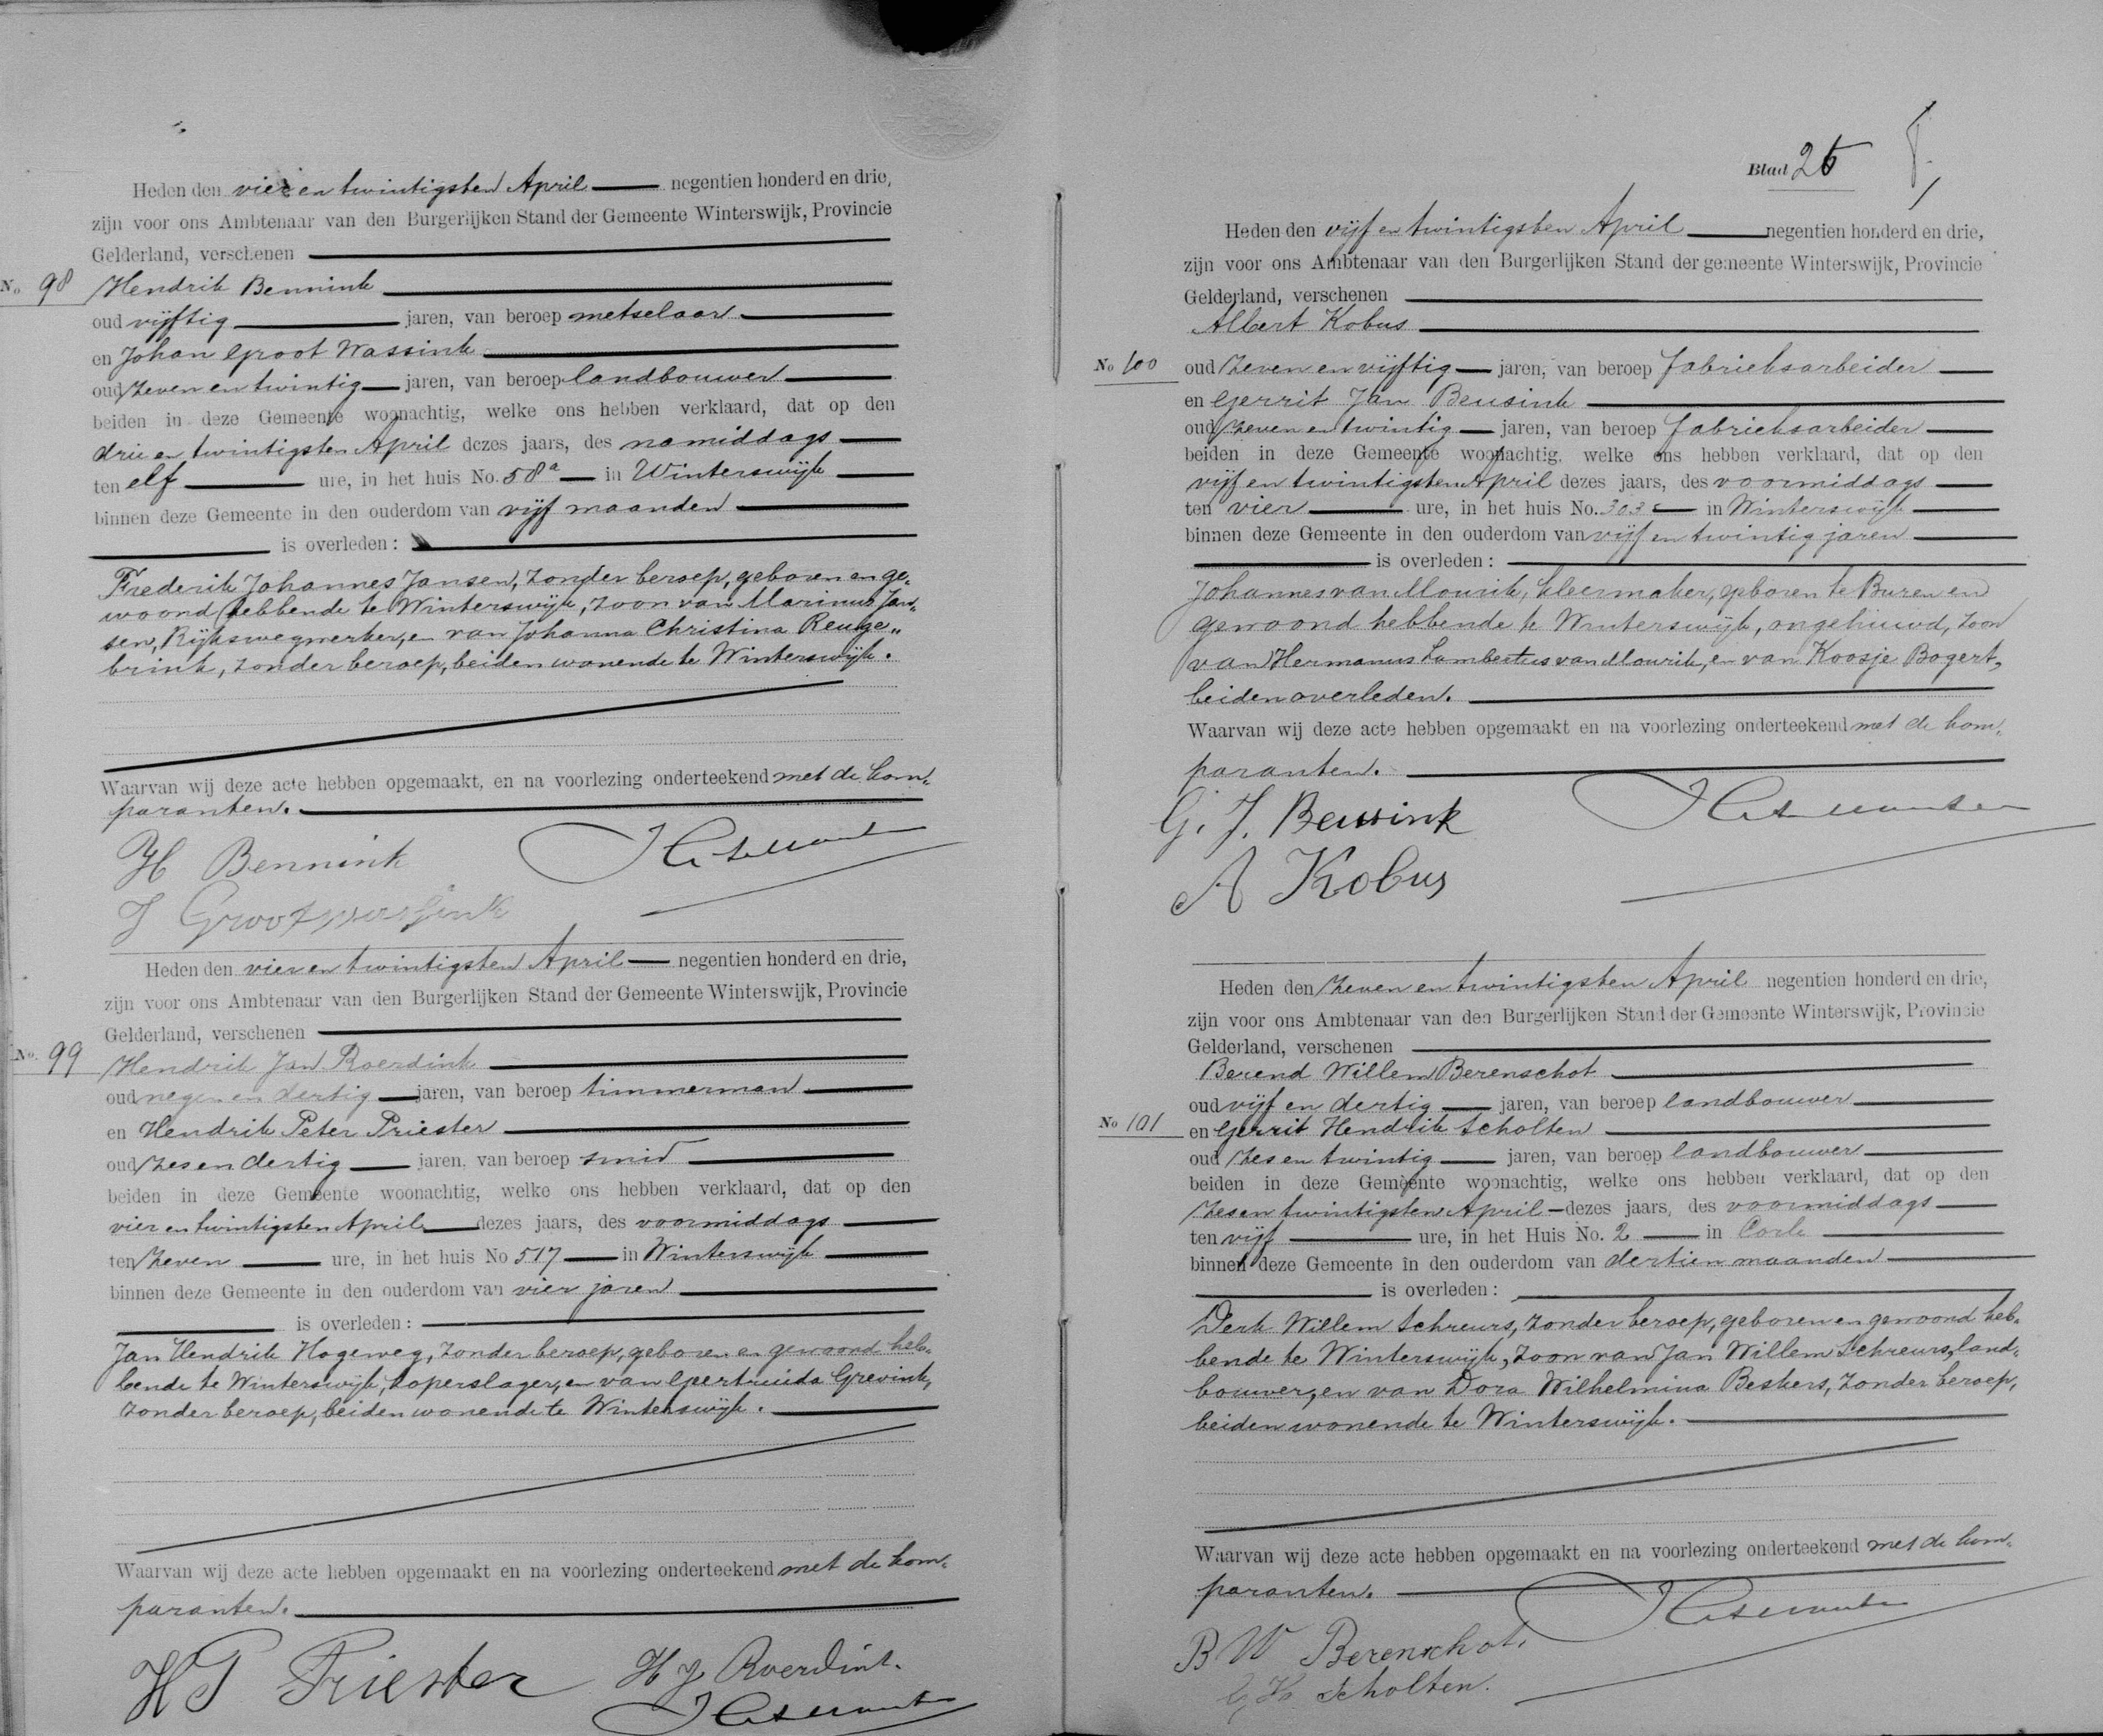 Heden den vier en twintigsten April negentien honderd en drie,
zijn voor ons Ambtenaar van den Burgerlijken Stand der Gemeente Winterswijk, Provincie
Gelderland, verschenen
No 98 Hendrik Bennink
oud vijftig jaren, van beroep metselaar
en Johan Groot Wassink
oud zeven en twintig jaren, van beroep landbouwer
beiden in deze Gemeente woonachtig, welke ons hebben verklaard, dat op den
drie en twintigsten April dezes jaars, des namiddags
ten elf ure, in het huis No. 58a in Winterswijk
binnen deze Gemeente in den ouderdom van vijf maanden
is overleden:
Frederik Johannes Jansen, zonder beroep, geboren en ge-
woond hebbende te Winterswijk, zoon van Marinus Jan-
sen, Rijkswegwerker, en van Johanna Christina Renge„
brink, zonder beroep, beiden wonende te Winterswijk.
Waarvan wij deze acte hebben opgemaakt, en na voorlezing onderteekend met de kom-
paranten.
H Bennink
J Grootwassink
Heden den vier en twintigsten April negentien honderd en drie,
zijn voor ons Ambtenaar van den Burgerlijken Stand der Gemeente Winterswijk, Provincie
Gelderland, verschenen
No. 99 Hendrik Jan Roerdink
oud negen en dertig jaren, van beroep timmerman
en Hendrik Peter Priester
oud zes en dertig jaren, van beroep smid
beiden in deze Gemeente woonachtig, welke ons hebben verklaard, dat op den
vier en twintigsten April dezes jaars, des voormiddags
ten zeven ure, in het huis No 517 in Winterswijk
binnen deze Gemeente in den ouderdom van vier jaren
is overleden:
Jan Hendrik Hogeweg, zonder beroep, geboren en gewoond heb-
bende te Winterswijk, koperslager, en van Geertruida Grevink,
zonder beroep, beiden wonende te Winterswijk.
Waarvan wij deze acte hebben opgemaakt en na voorlezing onderteekend met de kom-
paranten.
H P Priester H J Roerdink.
Blad 25
Heden den vijf en twintigsten April negentien honderd en drie,
zijn voor ons Ambtenaar van den Burgerlijken Stand der gemeente Winterswijk, Provincie
Gelderland, verschenen
Albert Kobus
No 100 oud zeven en vijftig jaren, van beroep fabrieksarbeider
en Gerrit Jan Beusink
oud zeven en twintig jaren, van beroep fabrieksarbeider
beiden in deze Gemeente woonachtig, welke ons hebben verklaard, dat op den
vijf en twintigsten April dezes jaars, des voormiddags
ten vier ure, in het huis No. 303 in Winterswijk
binnen deze Gemeente in den ouderdom van vijf en twintig jaren
is overleden:
Johannes van Mourik, kleermaker, geboren te Buren en
gewoond hebbende te Winterswijk, ongehuwd, zoon
van Hermanus Lambertus van Mourik, en van Koosje Bogert,
beiden overleden.
Waarvan wij deze acte hebben opgemaakt en na voorlezing onderteekend met de kom-
paranten.
G. J. Beusink
A Kobus
Heden den zeven en twintigsten April negentien honderd en drie,
zijn voor ons Ambtenaar van den Burgerlijken Stand der Gemeente Winterswijk, Provincie
Gelderland, verschenen
Berend Willem Berenschot
oud vijf en dertig jaren, van beroep landbouwer
No 101 en Gerrit Hendrik Scholten
oud zes en twintig jaren, van beroep landbouwer
beiden in deze Gemeente woonachtig, welke ons hebben verklaard, dat op den
zes en twintigsten April dezes jaars, des voormiddags
ten vijf ure, in het Huis No. 2 in Corle
binnen deze Gemeente in den ouderdom van dertien maanden
is overleden:
Derk Willem Schreurs, zonder beroep, geboren en gewoond heb-
bende te Winterswijk, zoon van Jan Willem Schreurs, land-
bouwer, en van Dora Wilhelmina Beskers, zonder beroep,
beiden wonende te Winterswijk.
Waarvan wij deze acte hebben opgemaakt en na voorlezing onderteekend met de kom-
paranten.
B W Berenschot.
G H Scholten.